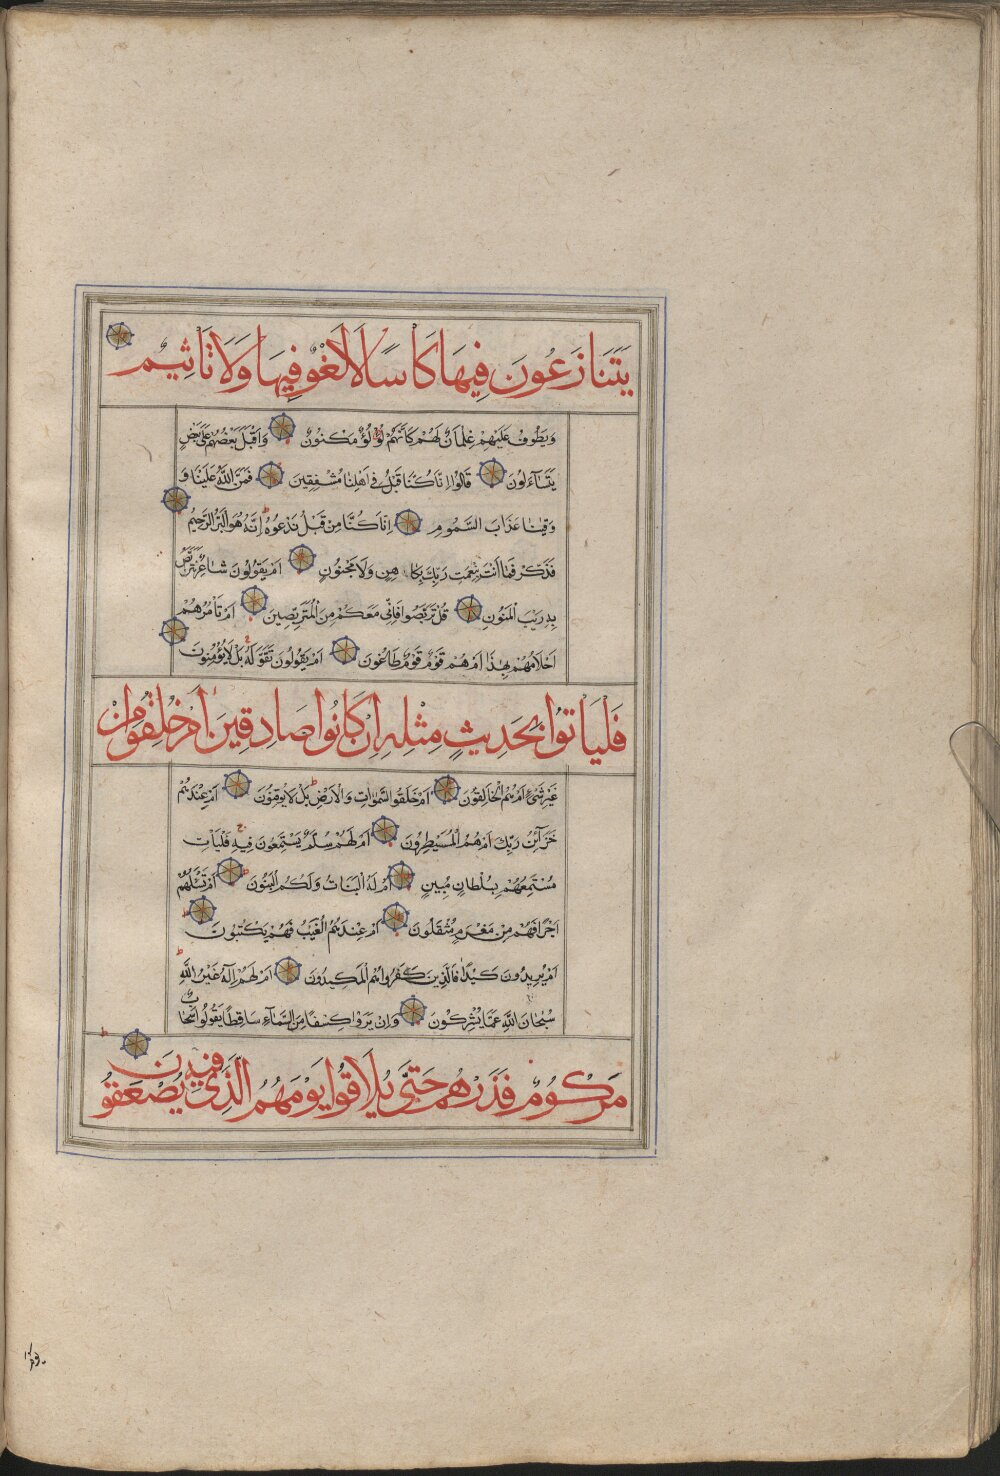 يَتَنَازَعُونَ فِيهَا كَاسًا لَا لَغْوٌ فِيهَا وَلَا تَاثِيمٌ
وَيَطُوفُ عَلَيْهِمْ غِلْمَانٌ لَهُمْ كَاَنَّهُمْ لُؤْلُؤٌ مَكْنُونٌ وَاَقْبَلَ بَعْضُهُمْ عَلَى بَعْضٍ
يَتَسَآءَلُونَ قَالُوا اِنَّا كُنَّا قَبْلُ فِى اَهْلِنَا مُشْفِقِينَ فَمَنَّ اللَّهُ عَلَيْنَا وَ
وَقٰينَا عَذَابَ السَّمُومِ اِنَّا كُنَّا مِنْ قَبْلُ نَدْعُوهُ اِنَّهُ هُوَ الْبَرُّ الرَّحِيمُ
فَذَكِّرْ فَمَا اَنْتَ بِنِعْمَتِ رَبِّكَ بِكَاهِنٍ وَلَا مَجْنُونٍ اَمْ يَقُولُونَ شَاعِرٌ نَتَرَبَّصُ
بِهِ رَيْبَ الْمَنُونِ قُلْ تَرَبَّصُوا فَاِنِّى مَعَكُمْ مِنَ الْمُتَرَبِّصِينَ اَمْ تَاْمُرُهُمْ
اَحْلَامُهُمْ بِهٰذَا اَمْ هُمْ قَوْمٌ طَاغُونَ اَمْ يَقُولُونَ تَقَوَّلَهُ بَلْ لَا يُؤْمِنُونَ
فَلْيَاتُوا بِحَدِيثٍ مِثْلِهِ اِنْ كَانُوا صَادِقِينَ اَمْ خُلِقُوا مِنْ
غَيْرِ شَىْءٍ اَمْ هُمُ الْخَالِقُونَ اَمْ خَلَقُوا السَّمٰوَاتِ وَالْاَرْضَ بَلْ لَا يُوقِنُونَ اَمْ عِنْدَهُمْ
خَزَآئِنُ رَبِّكَ اَمْ هُمُ الْمُسَيْطِرُونَ اَمْ لَهُمْ سُلَّمٌ يَسْتَمِعُونَ فِيهِ فَلْيَاْتِ
مُسْتَمِعُهُمْ بِسُلْطَانٍ مُبِينٍ اَمْ لَهُ الْبَنَاتُ وَلَكُمُ الْبَنُونَ اَمْ تَسْئَلُهُمْ
اَجْرًا فَهُمْ مِنْ مَغْرَمٍ مُثْقَلُونَ اَمْ عِنْدَهُمُ الْغَيْبُ فَهُمْ يَكْتُبُونَ
اَمْ يُرِيدُونَ كَيْدًا فَالَّذِينَ كَفَرُوا هُمُ الْمَكِيدُونَ اَمْ لَهُمْ اِلٰهٌ غَيْرُ اللَّهِ
سُبْحَانَ اللَّهِ عَمَّا يُشْرِكُونَ وَاِنْ يَرَوْا كِسْفًا مِنَ السَّمَآءِ سَاقِطًا يَقُولُوا سَحَابٌ
مَرْكُومٌ فَذَرْهُمْ حَتَّى يُلَاقُوا يَوْمَهُمُ الَّذِى فِيهِ يُصْعَقُونَ